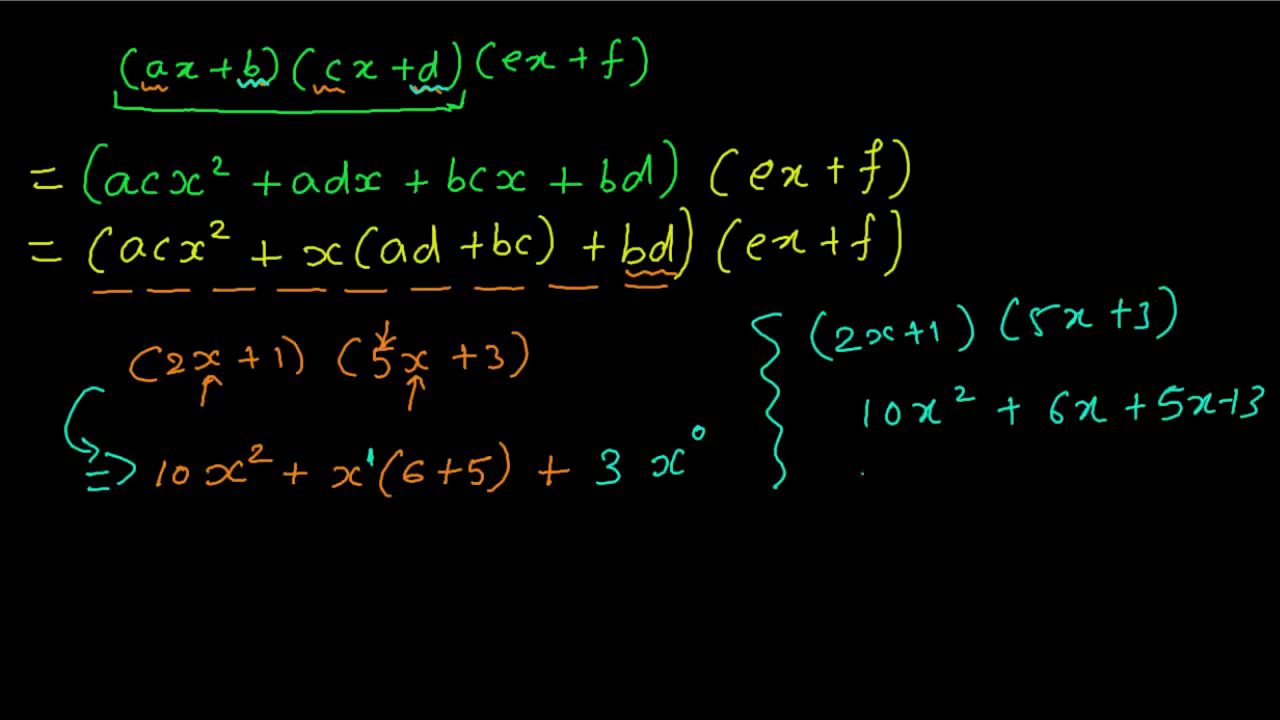 (ax+b)(cx+d)(ex+f)
= (acx² + adx + bcx + bd) (ex+f)
= (acx² + x(ad+bc) + bd) (ex+f)
(2x+1) (5x+3)
⇒ 10x² + x¹(6+5) + 3 x⁰
(2x+1) (5x+3)
10x² + 6x + 5x+3